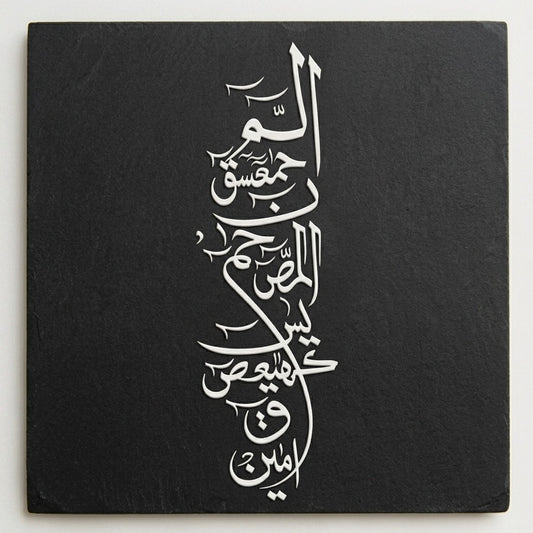 الم
حمعسق
ن
حم
المص
يس
كهيعص
ق
امين